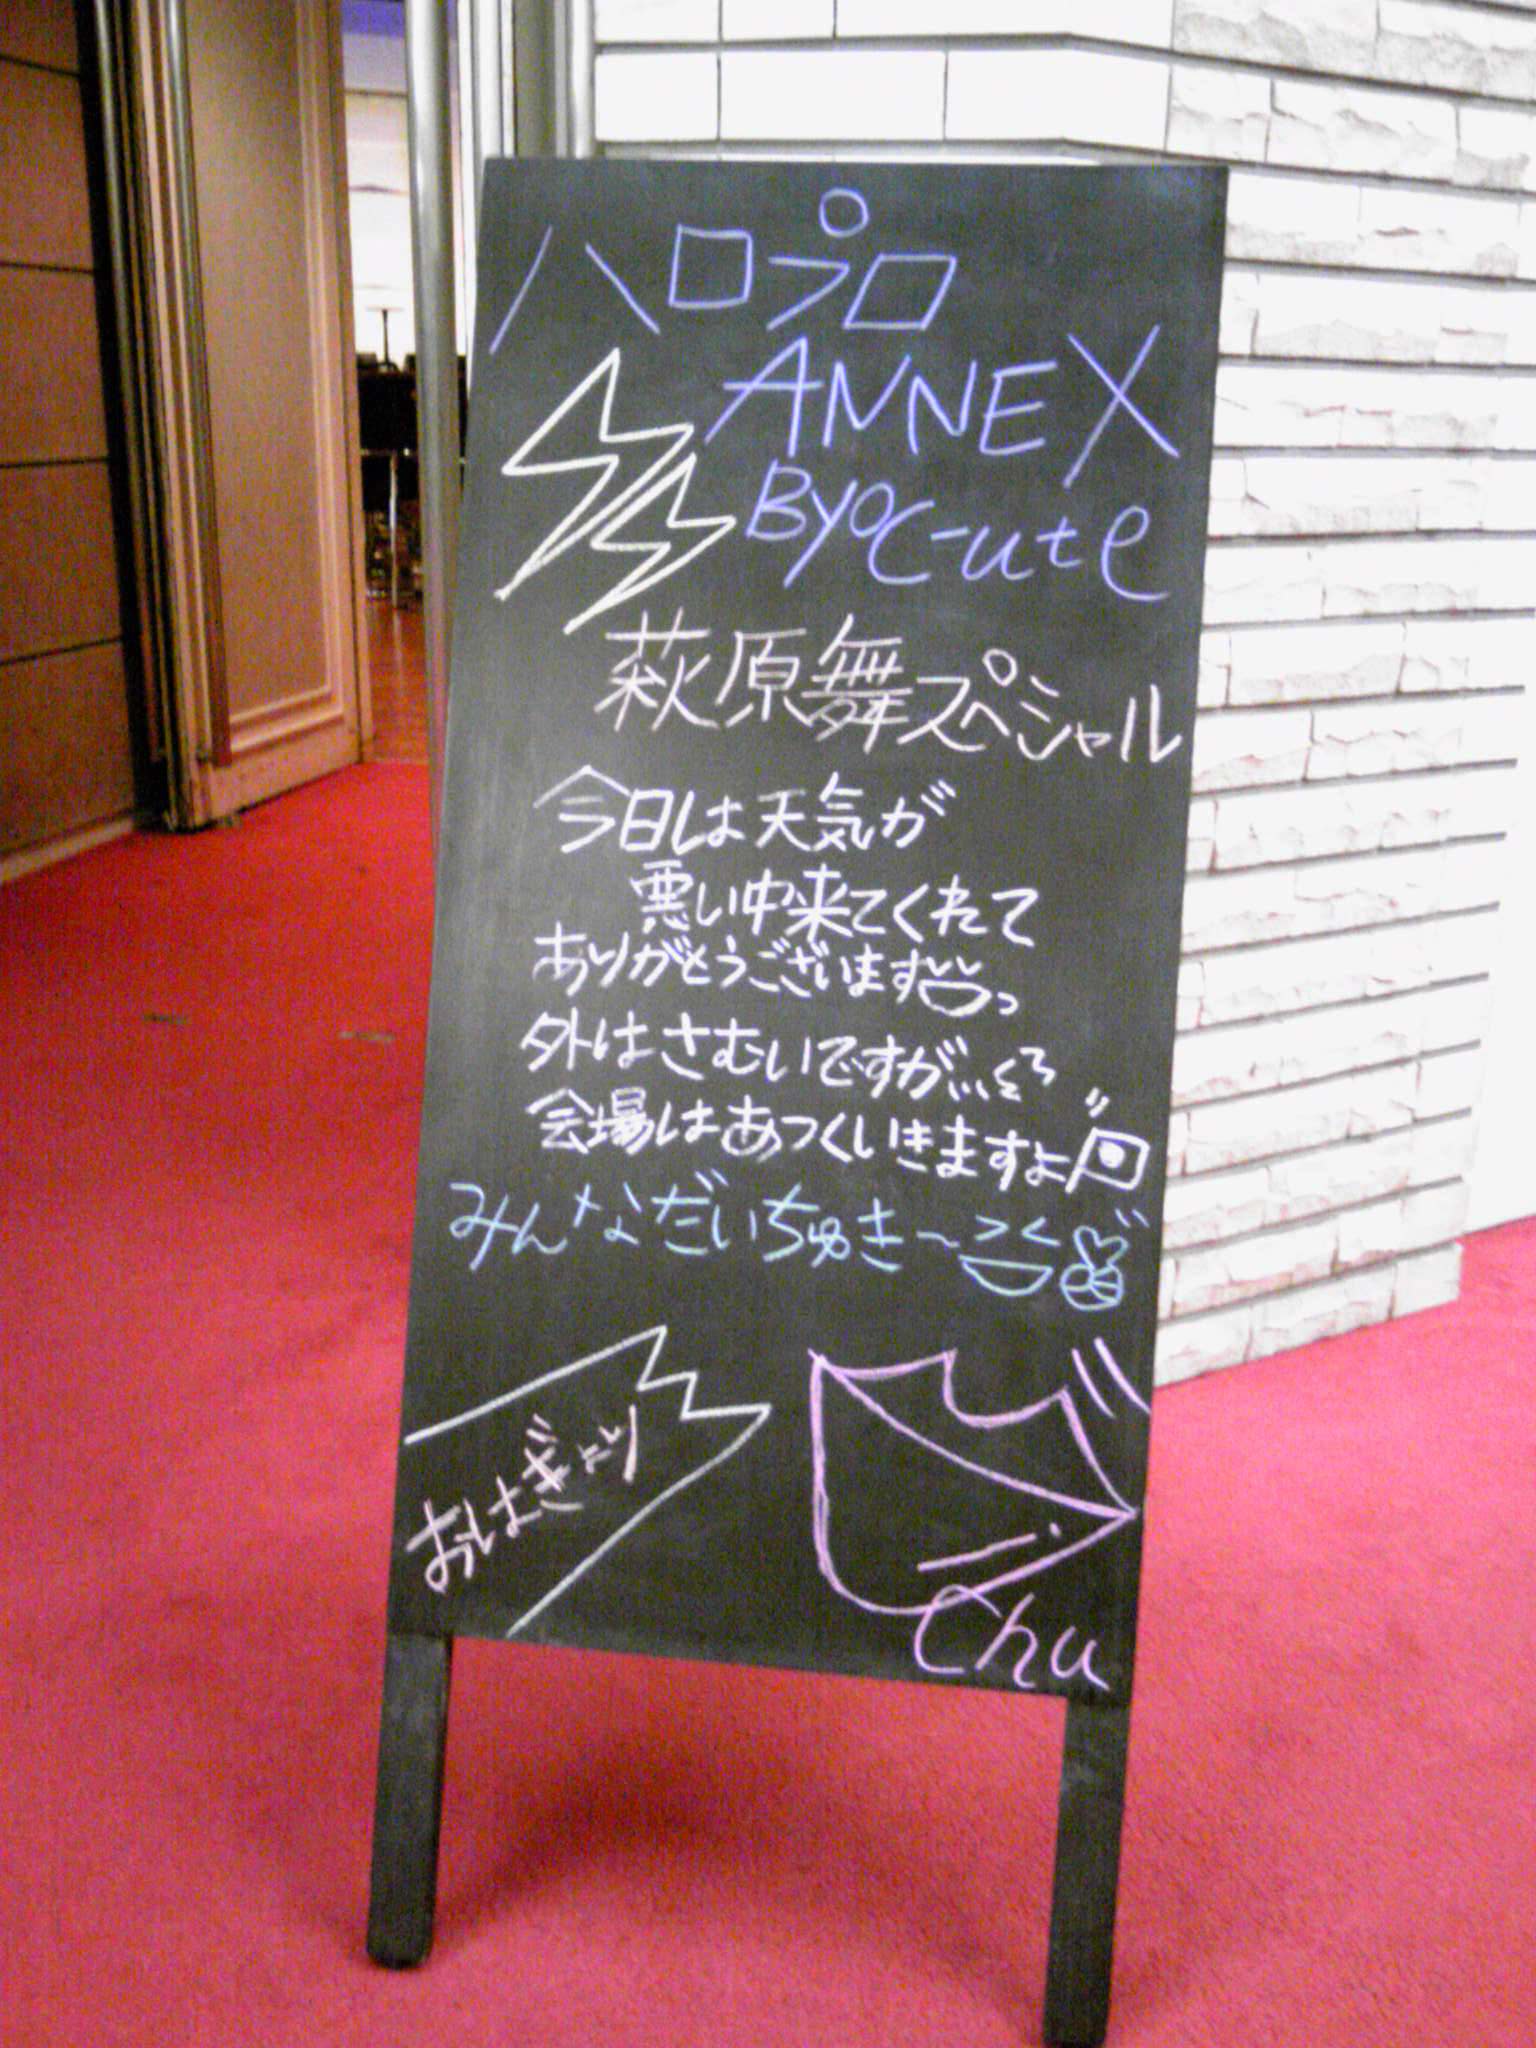 ハロプロ
ANNEX
By ℃-ute
萩原舞スペシャル
今日は天気が
悪い中来てくれて
ありがとうございます
外はさむいですが…
会場はあつくいきますよ
みんなだいちゅき～
おはぎより
Chu